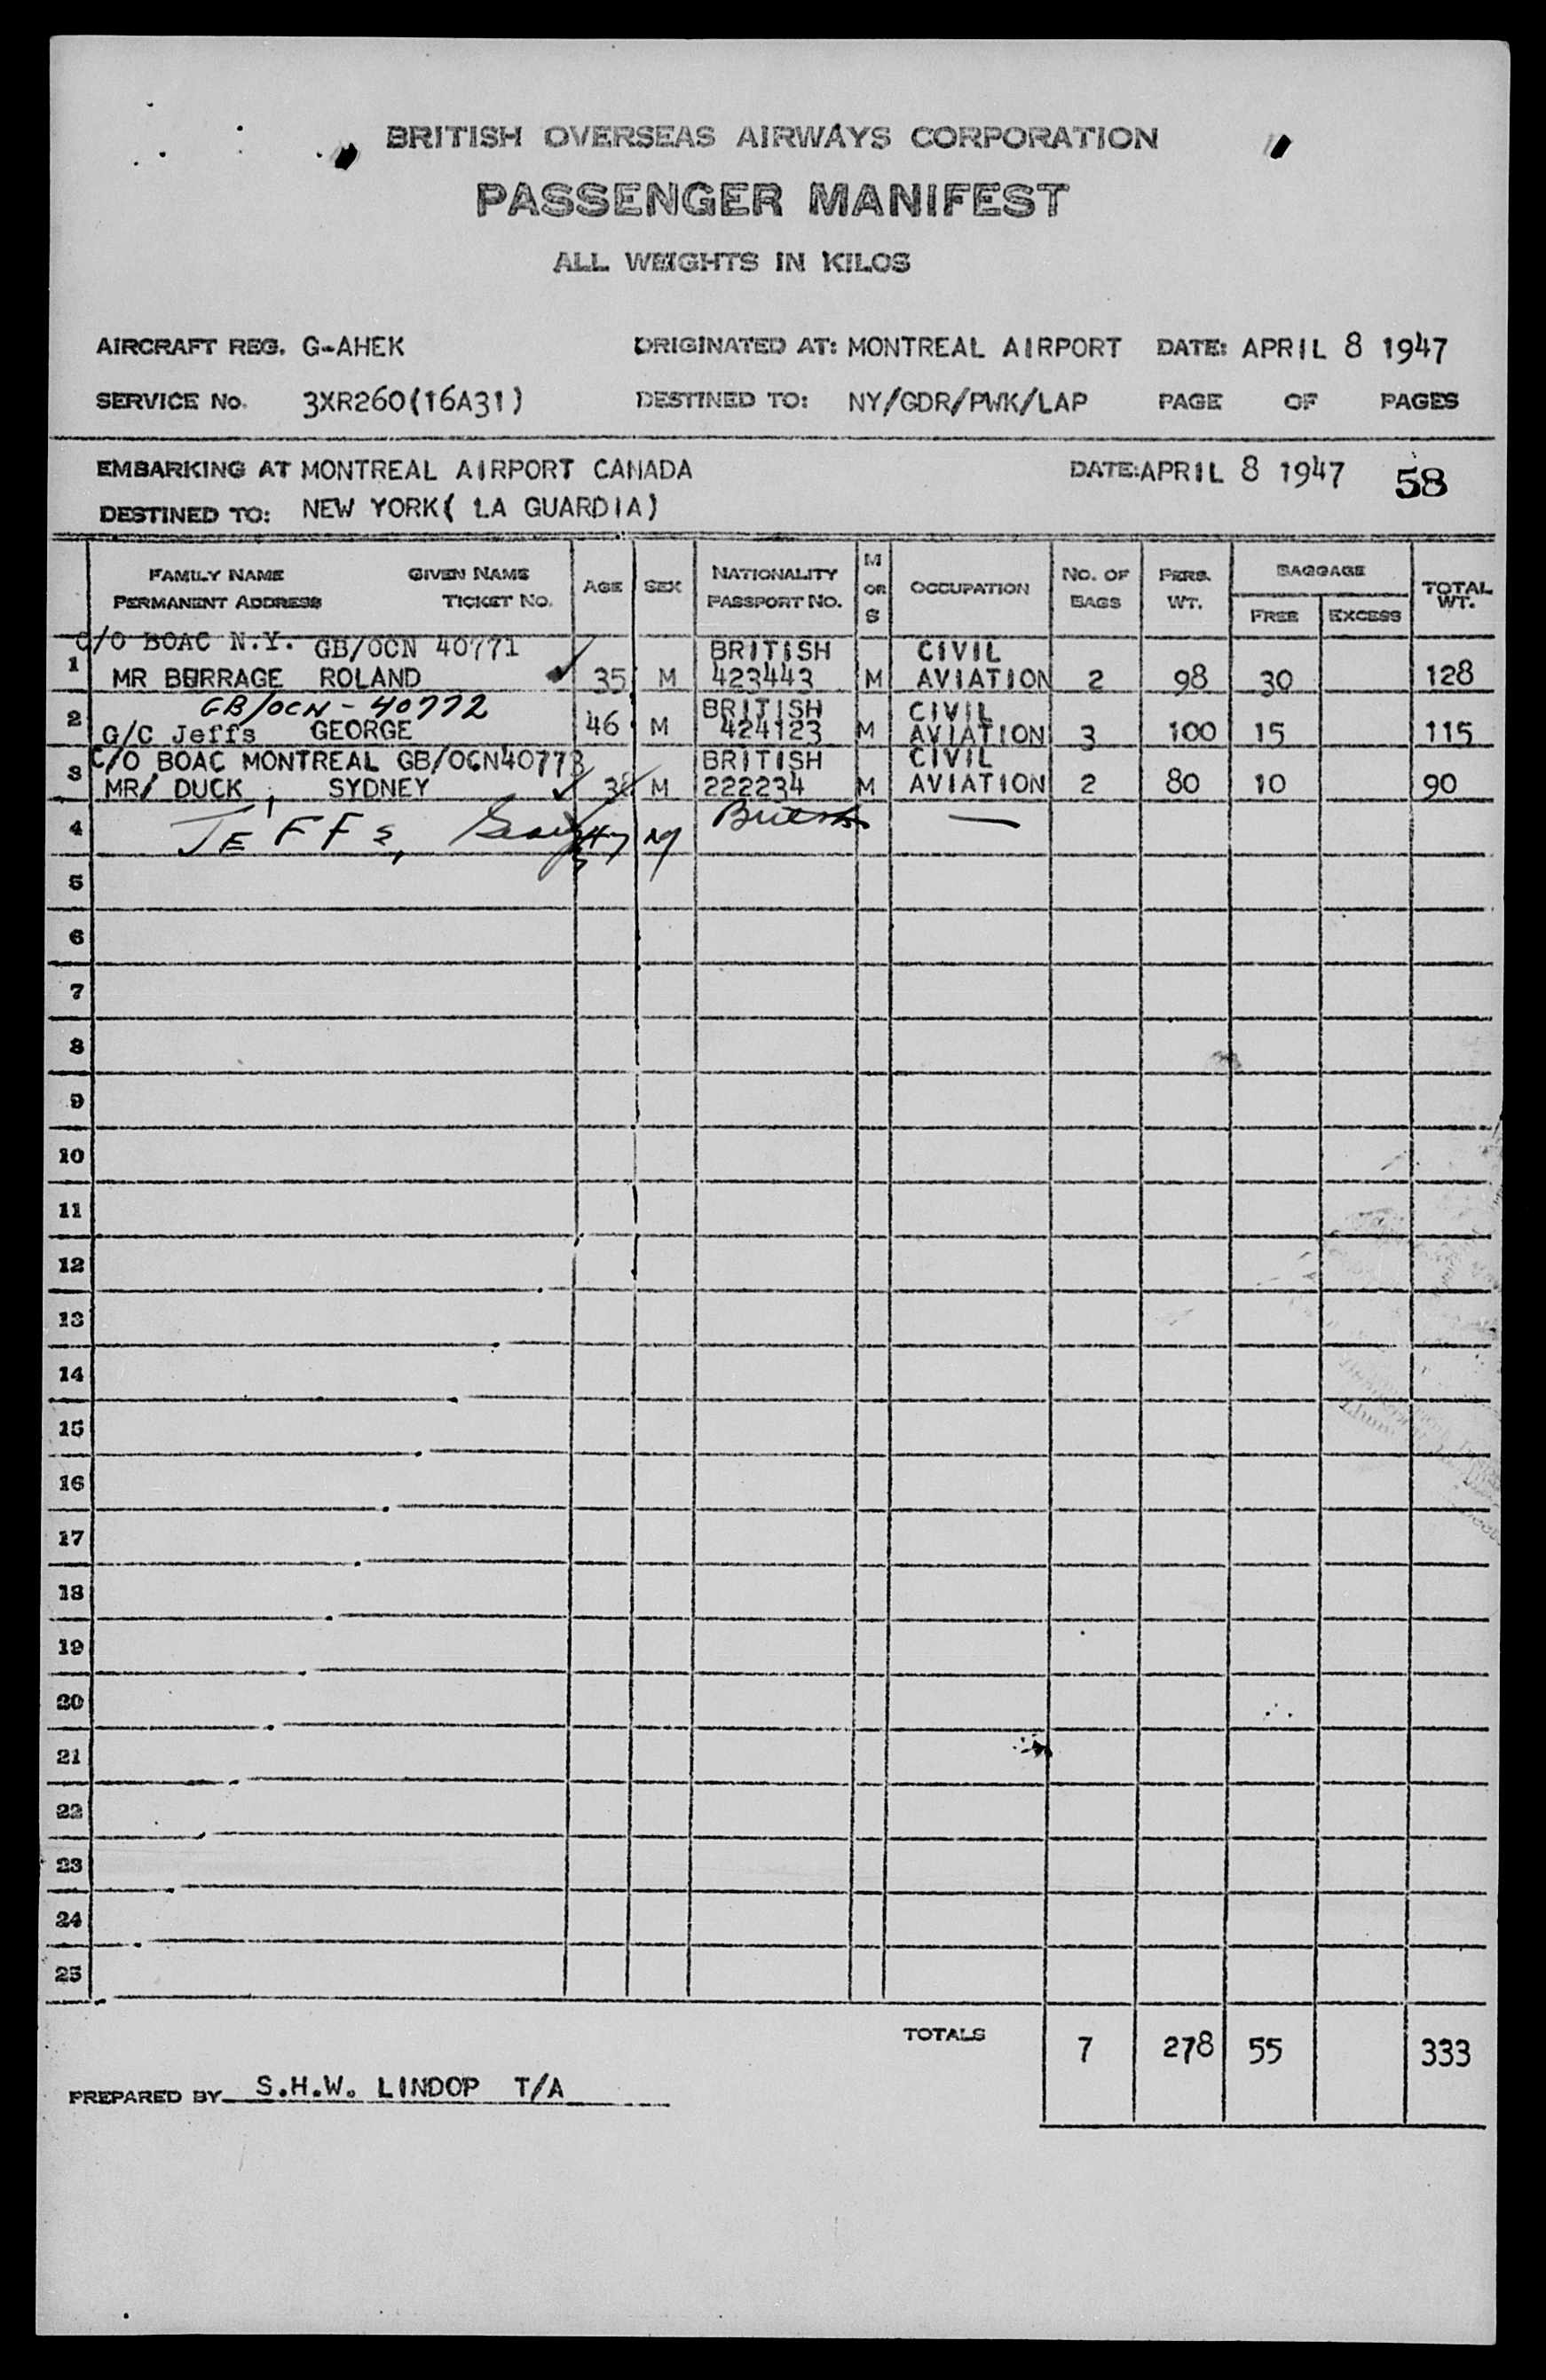 BRITISH OVERSEAS AIRWAYS CORPORATION
PASSENGER MANIFEST
ALL WEIGHTS IN KILOS
AIRCRAFT REG. G-AHEK ORIGINATED AT: MONTREAL AIRPORT DATE: APRIL 8 1947
SERVICE No. 3XR260(16A31) DESTINED TO: NY/GDR/PWK/LAP PAGE OF PAGES
EMBARKING AT MONTREAL AIRPORT CANADA DATE: APRIL 8 1947 58
DESTINED TO: NEW YORK( LA GUARDIA)
FAMILY NAME GIVEN NAME AGE SEX NATIONALITY M OR S OCCUPATION NO. OF BAGS PERS. WT. BAGGAGE TOTAL WT.
PERMANENT ADDRESS TICKET NO. PASSPORT NO. FREE EXCESS
C/O BOAC N.Y. GB/OCN 40771 BRITISH CIVIL
1 MR BURRAGE ROLAND 35 M 423443 M AVIATION 2 98 30 128
GB/OCN - 40772 BRITISH CIVIL
2 G/C Jeffs GEORGE 46 M 424123 M AVIATION 3 100 15 115
C/O BOAC MONTREAL GB/OCN40773 BRITISH CIVIL
3 MR/ DUCK , SYDNEY 38 M 222234 M AVIATION 2 80 10 90
4 JEFFS, M British —
5
6
7
8
9
10
11
12
13
14
15
16
17
18
19
20
21
22
23
24
25
TOTALS 7 278 55 333
PREPARED BY S.H.W. LINDOP T/A